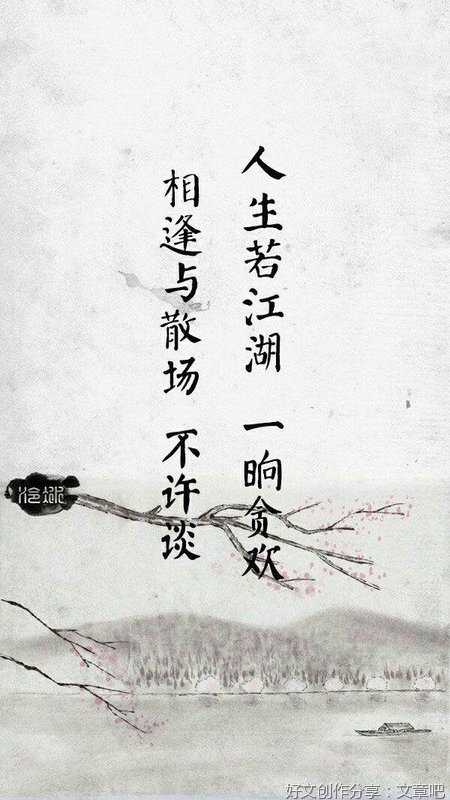 人生若江湖 一晌贪欢
相逢与散场 不许谈
好文创作分享：文章吧